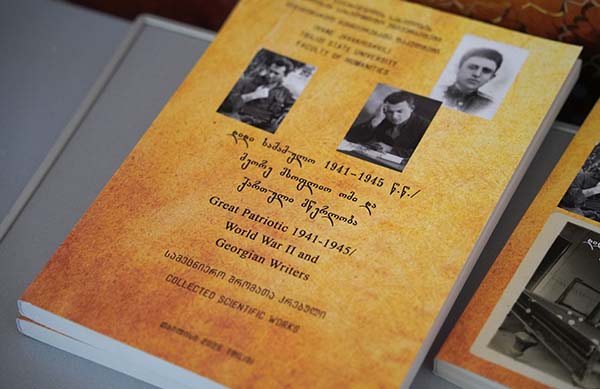 IVANE JAVAKHISHVILI
TBILISI STATE UNIVERSITY
FACULTY OF HUMANITIES
დიდი სამამულო 1941-1945 წ.წ./
მეორე მსოფლიო ომი და
ქართული მწერლობა
Great Patriotic 1941-1945/
World War II and
Georgian Writers
სამეცნიერო შრომათა კრებული
COLLECTED SCIENTIFIC WORKS